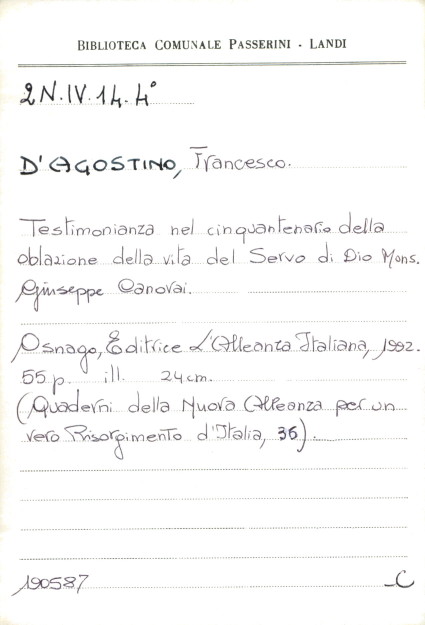 BIBLIOTECA COMUNALE PASSERINI - LANDI
2N.IV.14.4°
D'AGOSTINO, Francesco.
Testimonianza nel cinquantenario della
oblazione della vita del Servo di Dio Mons.
Giuseppe Canovai.
Osnago, Editrice L'Alleanza Italiana, 1992.
55 p. ill. 24 cm.
(Quaderni della Nuova Alleanza per un
vero Risorgimento d'Italia, 36).
190587 -C